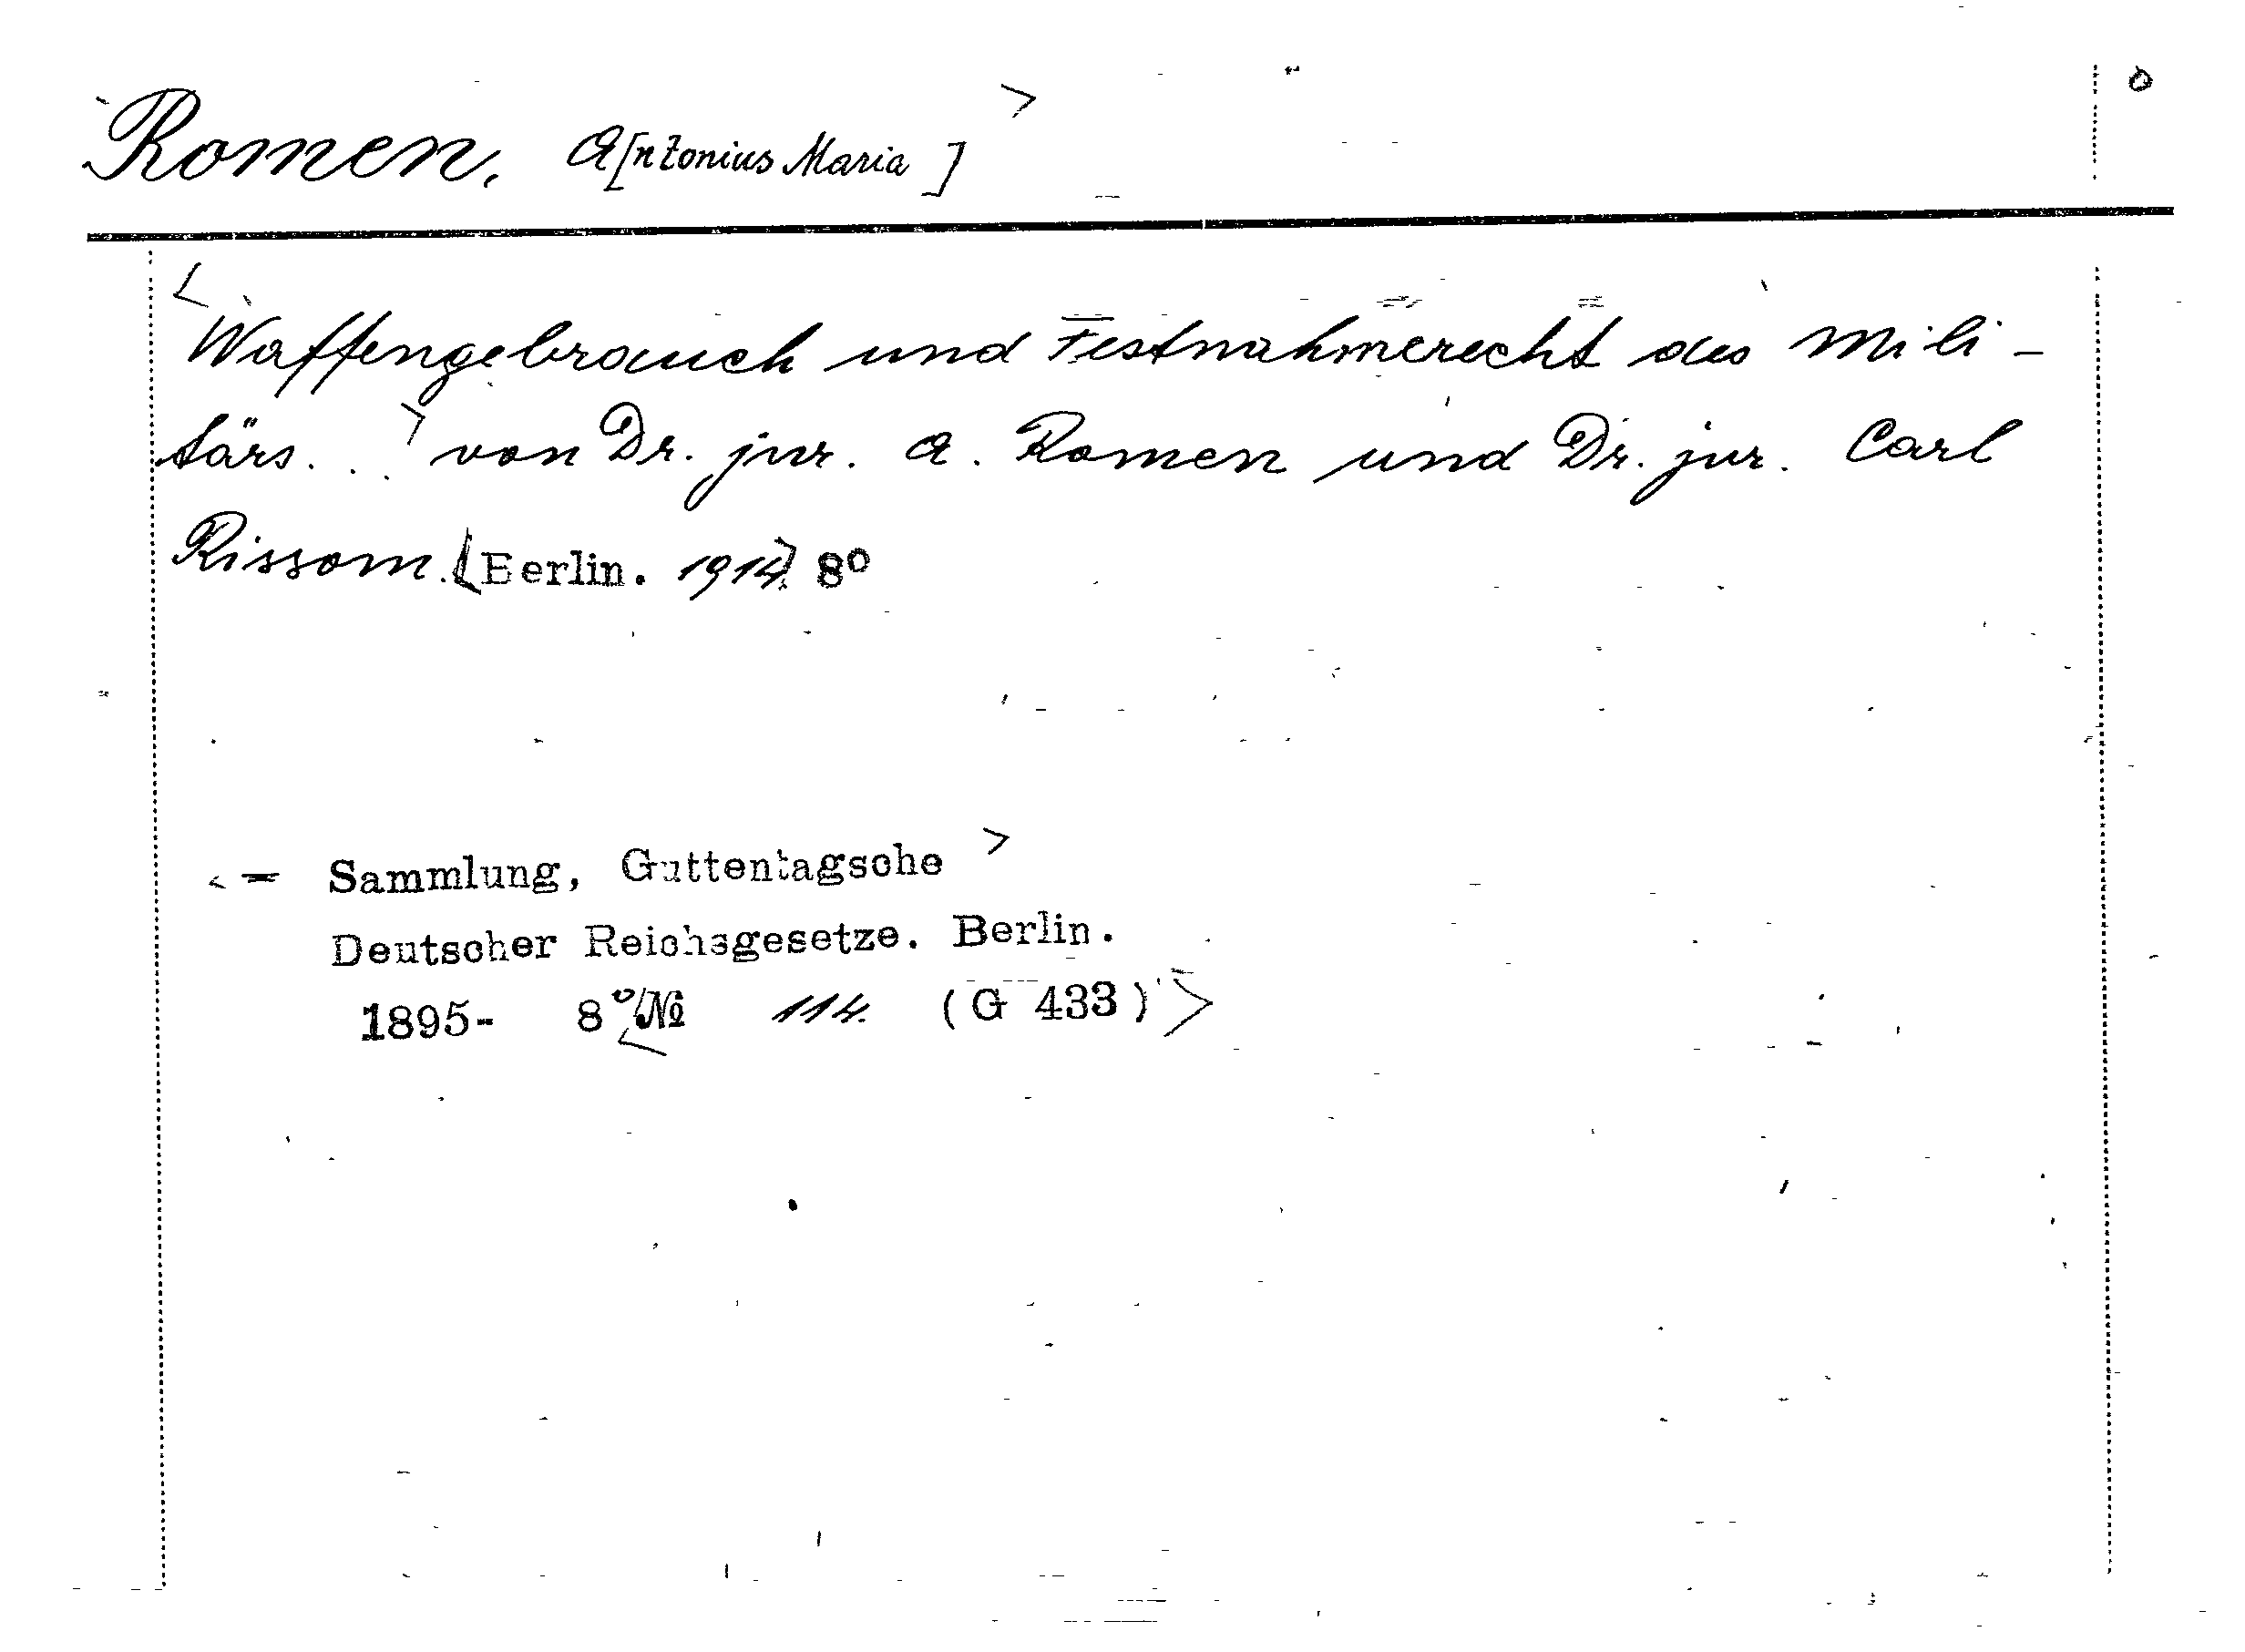 Romen, A[ntonius Maria]
Waffengebrauch und Festnahmerecht des Mili-
tärs... von Dr. jur. A. Romen und Dr. jur. Carl
Rissom. Berlin. 1914. 8°
= Sammlung, Guttentagsche
Deutscher Reichsgesetze. Berlin.
1895- 8° № 114. (G 433)